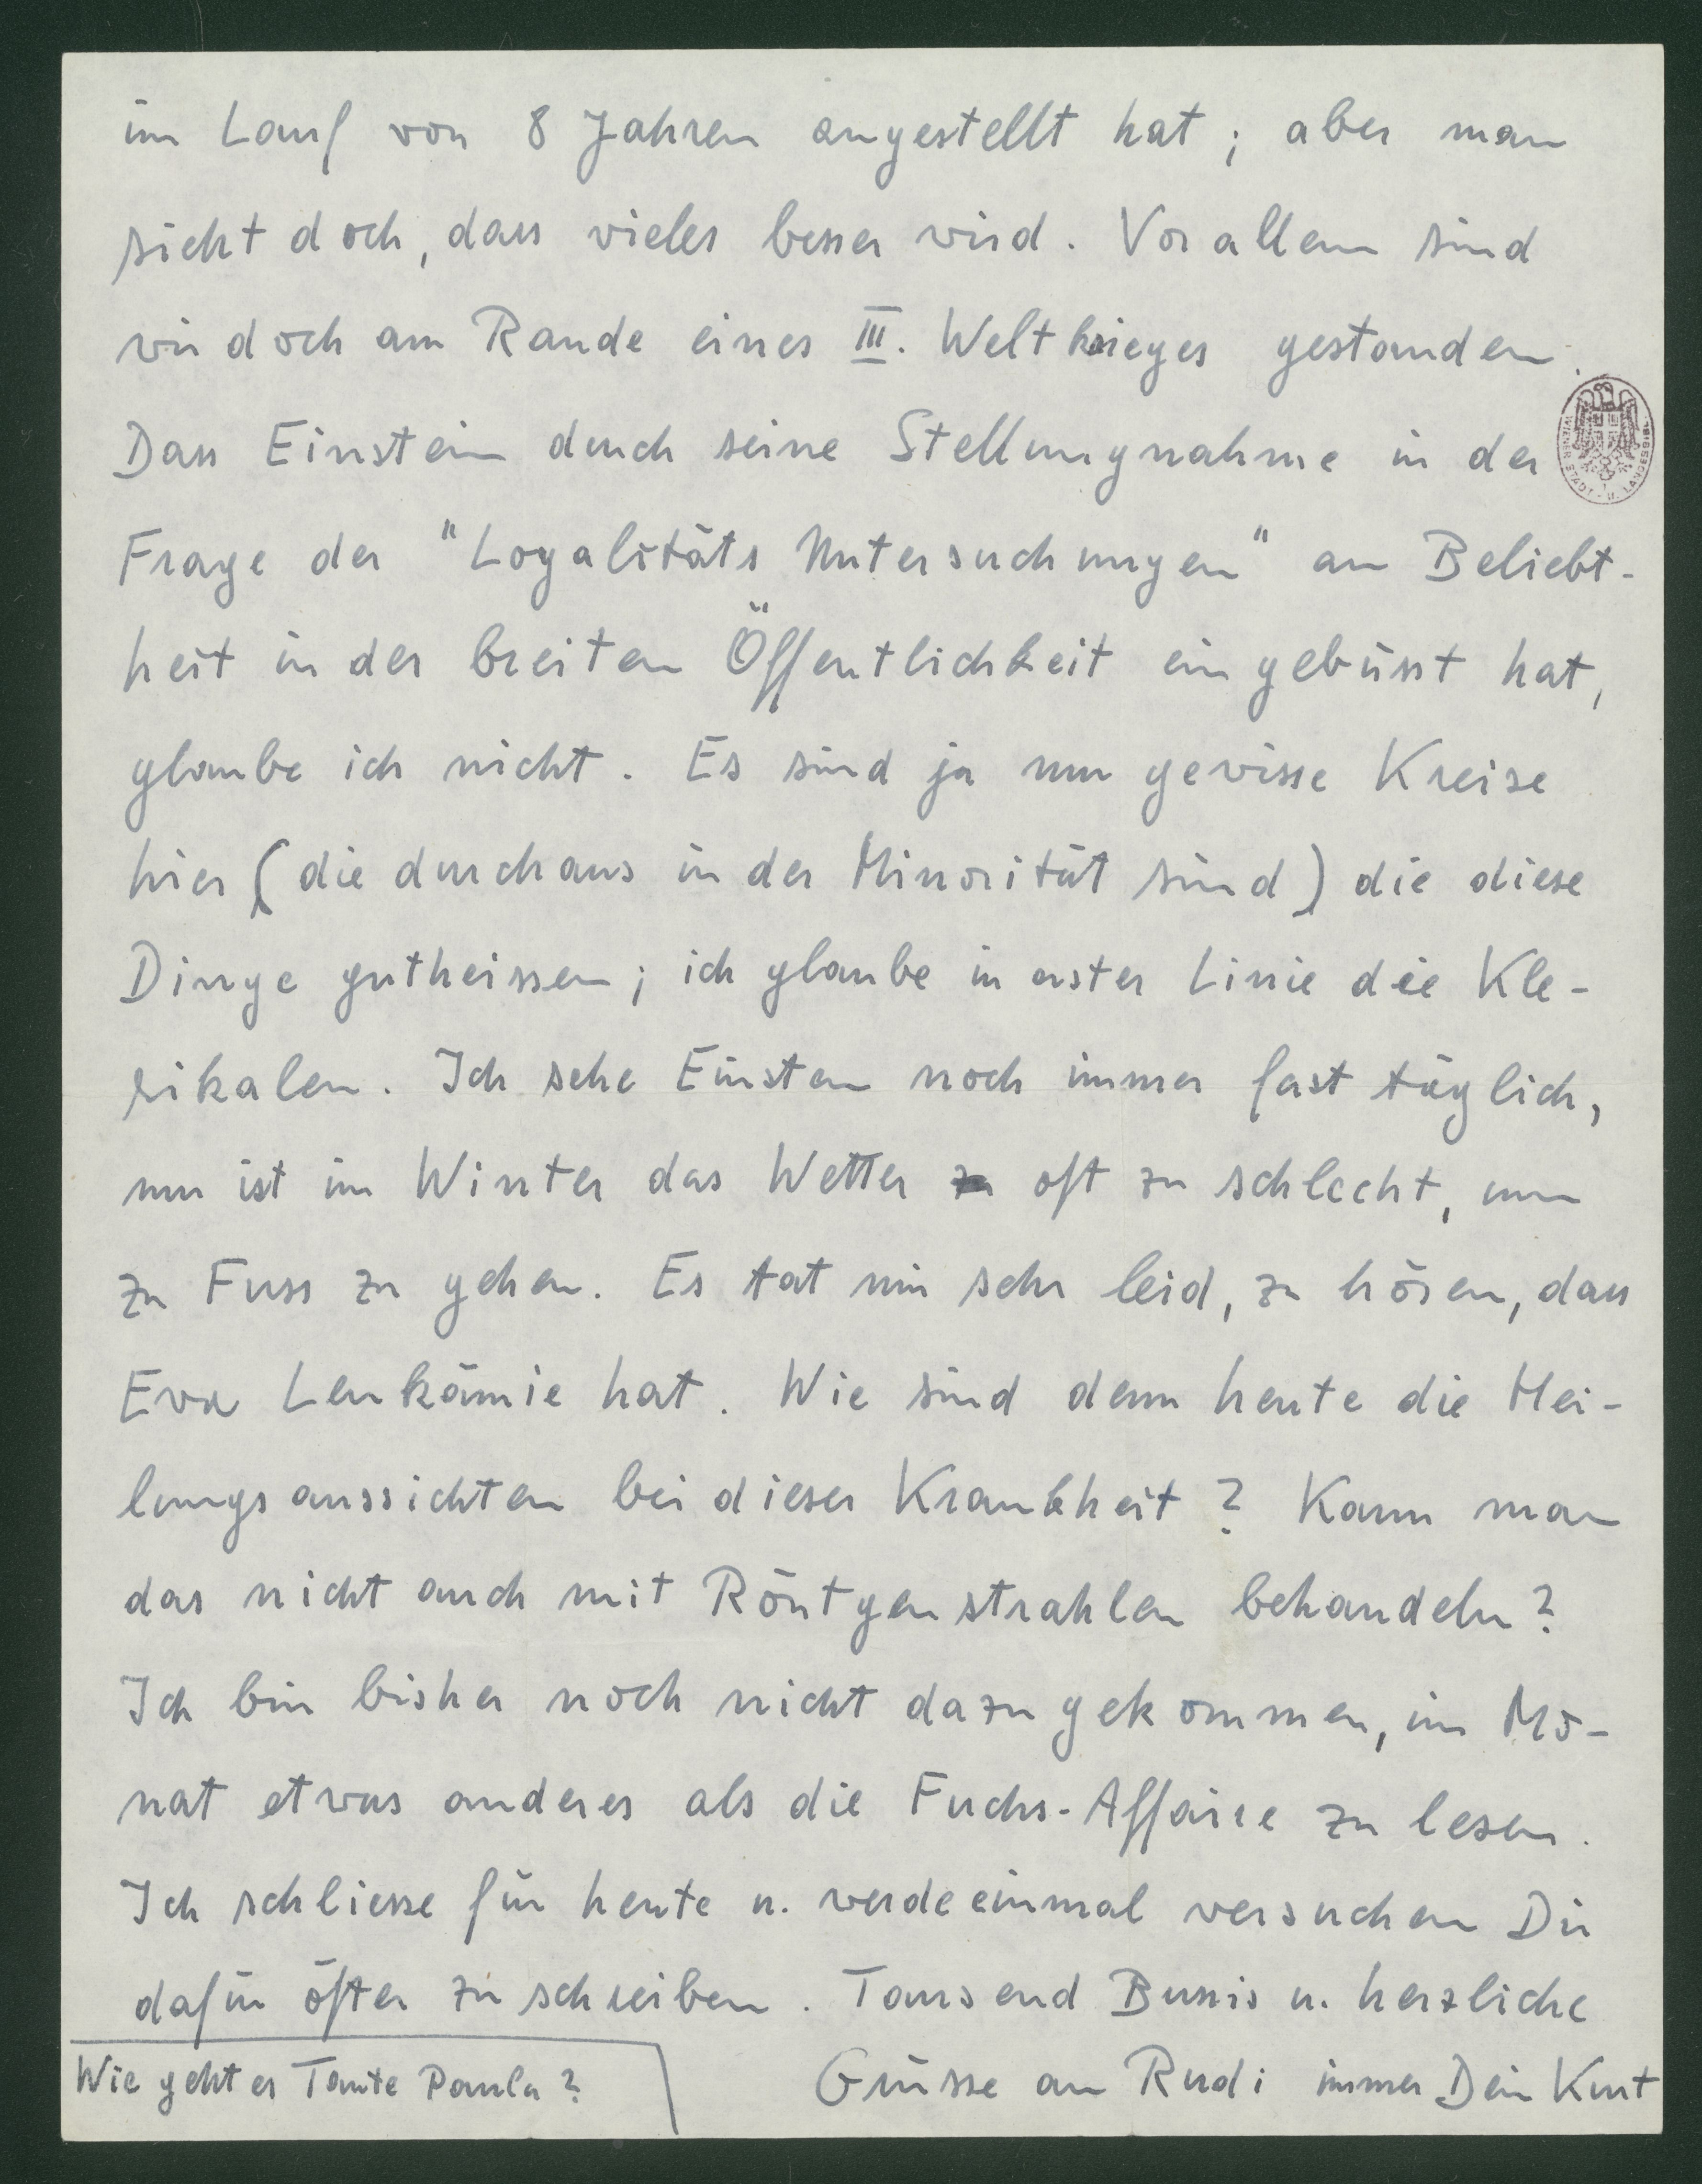 im Lauf von 8 Jahren angestellt hat; aber man
sieht doch, dass vieles besser wird. Vor allem sind
wir doch am Rande eines III. Weltkrieges gestanden.
Dass Einstein durch seine Stellungnahme in der
Frage der "Loyalitäts Untersuchungen" an Beliebt-
heit in der breiten Öffentlichkeit eingebüsst hat,
glaube ich nicht. Es sind ja nur gewisse Kreise
hier (die durchaus in der Minorität sind) die diese
Dinge gutheissen; ich glaube in erster Linie die Kle-
rikalen. Ich sehe Einstein noch immer fast täglich,
nur ist im Winter das Wetter oft zu schlecht, um
zu Fuss zu gehen. Es tat mir sehr leid, zu hören, dass
Eva Leukämie hat. Wie sind denn heute die Hei-
lungsaussichten bei dieser Krankheit? Kann man
das nicht auch mit Röntgenstrahlen behandeln?
Ich bin bisher noch nicht dazugekommen, im Mo-
nat etwas anderes als die Fuchs-Affaire zu lesen.
Ich schliesse für heute u. werde einmal versuchen Dir
dafür öfter zu schreiben. Tausend Bussis u. herzliche
Grüsse an Rudi immer Dein Kurt
Wie geht es Tante Paula?
WIENER STADT- U. LANDESBIBL.